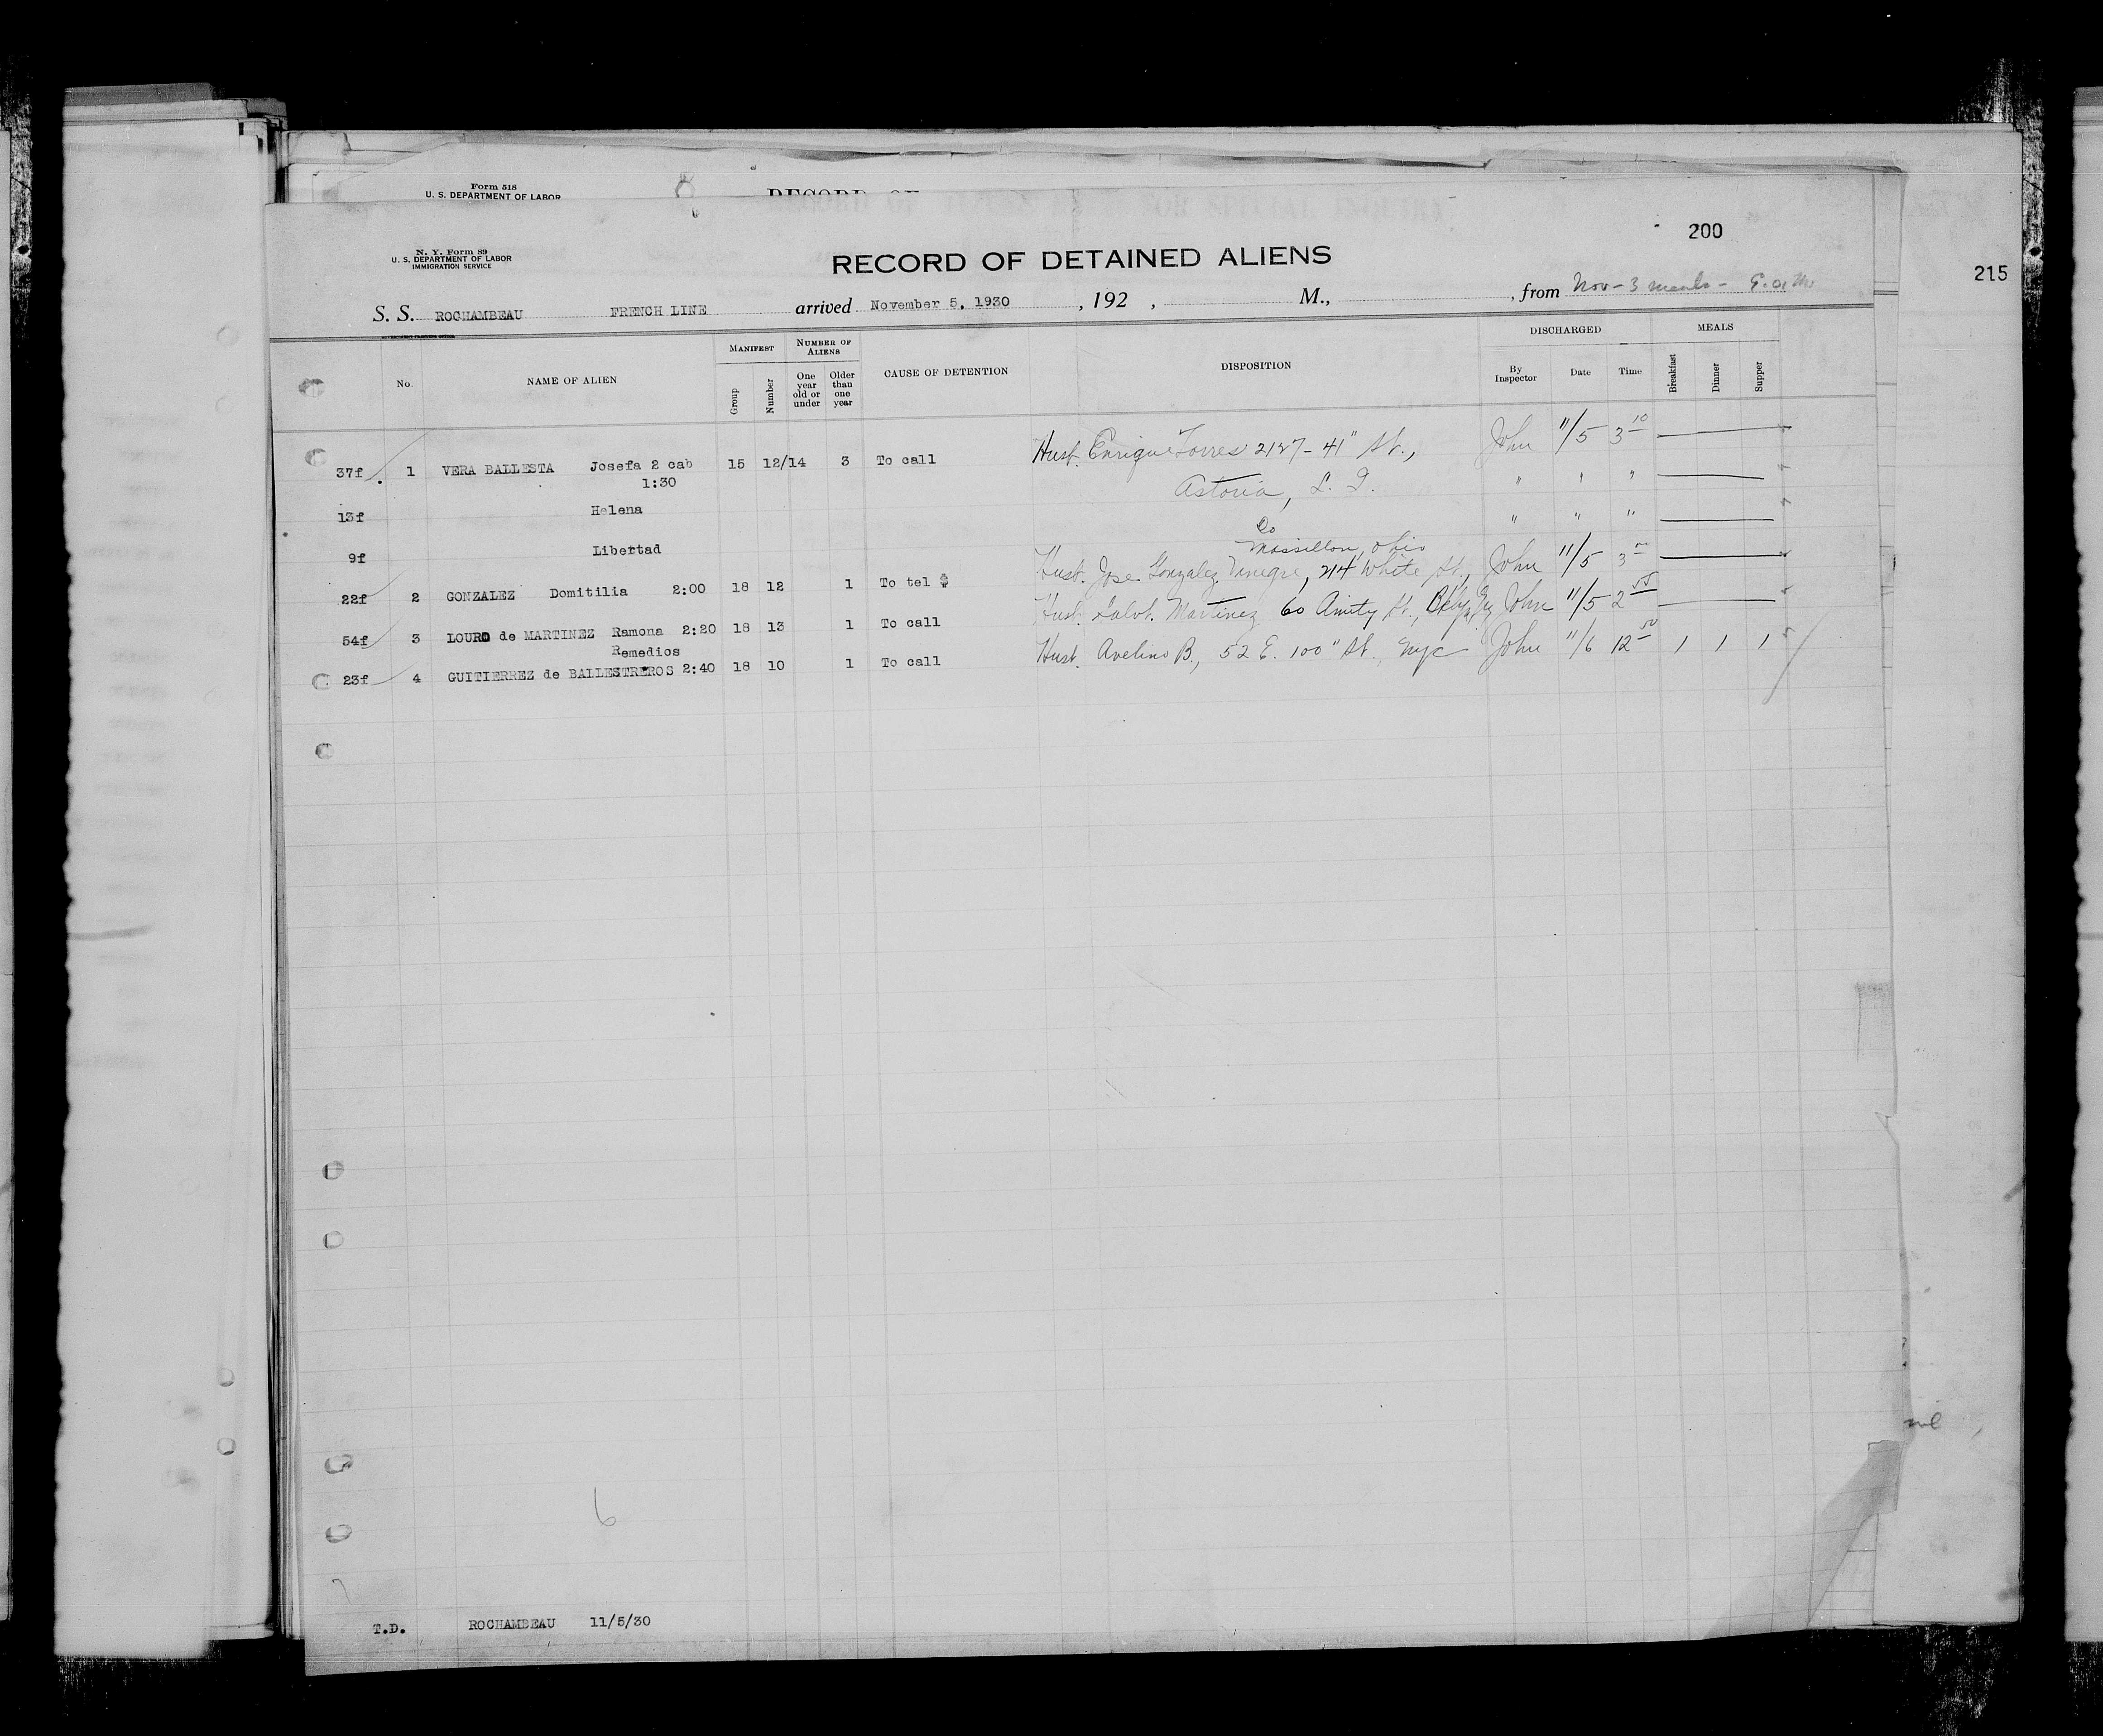 Form 518
U. S. DEPARTMENT OF LABOR
8
RECORD OF
200
N. Y. Form 89
U. S. DEPARTMENT OF LABOR
IMMIGRATION SERVICE
RECORD OF DETAINED ALIENS
215
S. S. ROCHAMBEAU FRENCH LINE arrived November 5, 1930, 192 , M., , from Nov - 3 meals -
No. NAME OF ALIEN MANIFEST Group Number NUMBER OF ALIENS One year old or under Older than one year CAUSE OF DETENTION DISPOSITION DISCHARGED By Inspector Date Time MEALS Breakfast Dinner Supper
37f 1 VERA BALLESTA Josefa 2 cab 15 12/14 3 To call Husb. Enrique Torres 2127 - 41" St., John 11/5 3 10
1:30 Astoria, L. I. " " "
13f Helena " " "
9f Libertad Do
Massillon, Ohio
22f 2 GONZALEZ Domitilia 2:00 18 12 1 To tel Husb. Jose Gonzalez 214 White St., John 11/5 3
54f 3 LOURO de MARTINEZ Ramona 2:20 18 13 1 To call Husb. Martinez 60 Amity St., John 11/5 2 55
Remedios
23f 4 GUITIERREZ de BALLESTREROS 2:40 18 10 1 To call Husb. Avelino B., 52 E. 100" St., NYC John 11/6 12 50 1 1 1
6
T.D. ROCHAMBEAU 11/5/30